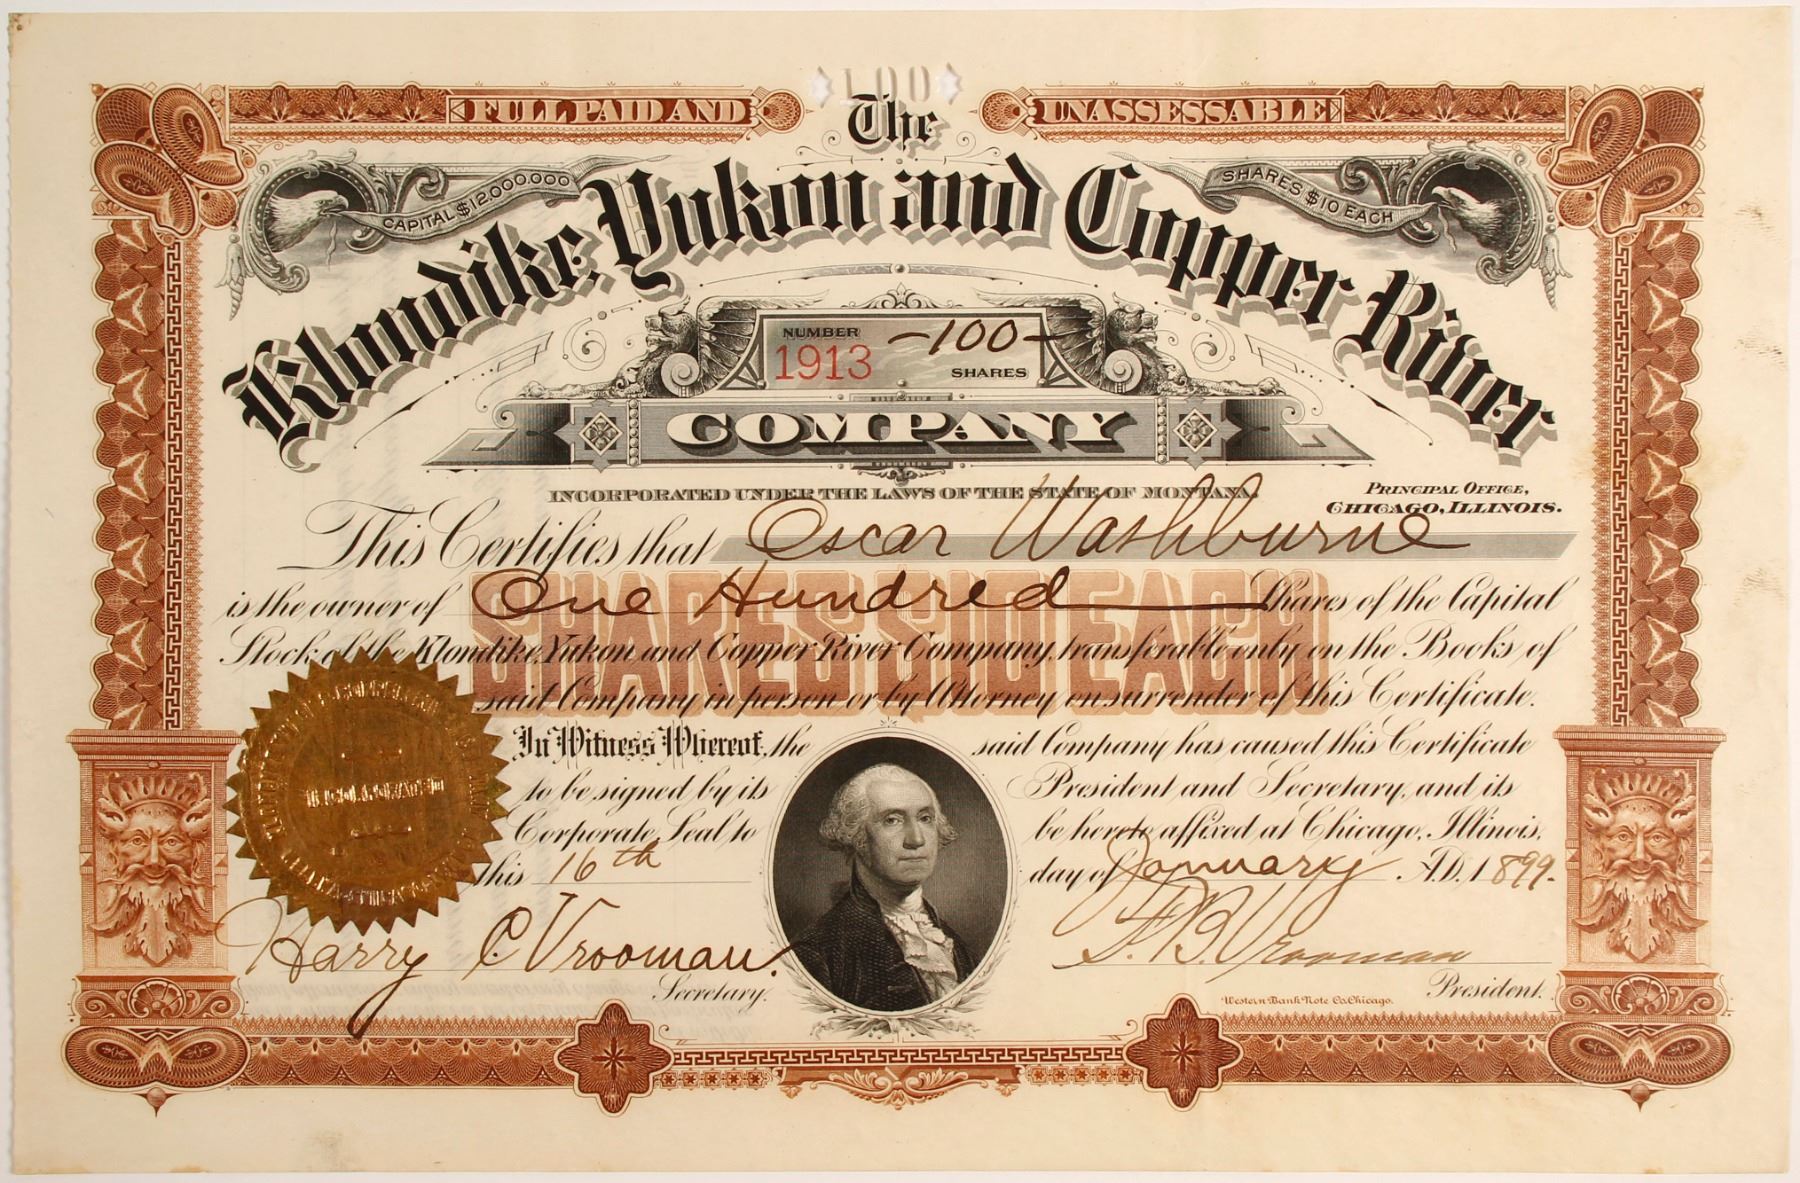 100
FULL PAID AND
UNASSESSABLE
The
CAPITAL $12,000,000
SHARES $10 EACH
Klondike, Yukon and Copper River
NUMBER
1913
-100-
SHARES
COMPANY
INCORPORATED UNDER THE LAWS OF THE STATE OF MONTANA.
PRINCIPAL OFFICE,
CHICAGO, ILLINOIS.
This Certifies that Oscar Washburne
is the owner of One Hundred Shares of the Capital
SHARES $10 EACH
Stock of the Klondike, Yukon and Copper River Company, transferable only on the Books of
said Company in person or by Attorney on surrender of this Certificate.
In Witness Whereof, the said Company has caused this Certificate
to be signed by its President and Secretary, and its
Corporate Seal to be hereto affixed at Chicago, Illinois,
this 16th day of January A.D. 1899.
Harry C. Vrooman.
Secretary.
F. B. Vrooman
President.
Western Bank Note Co. Chicago.
INCORPORATED